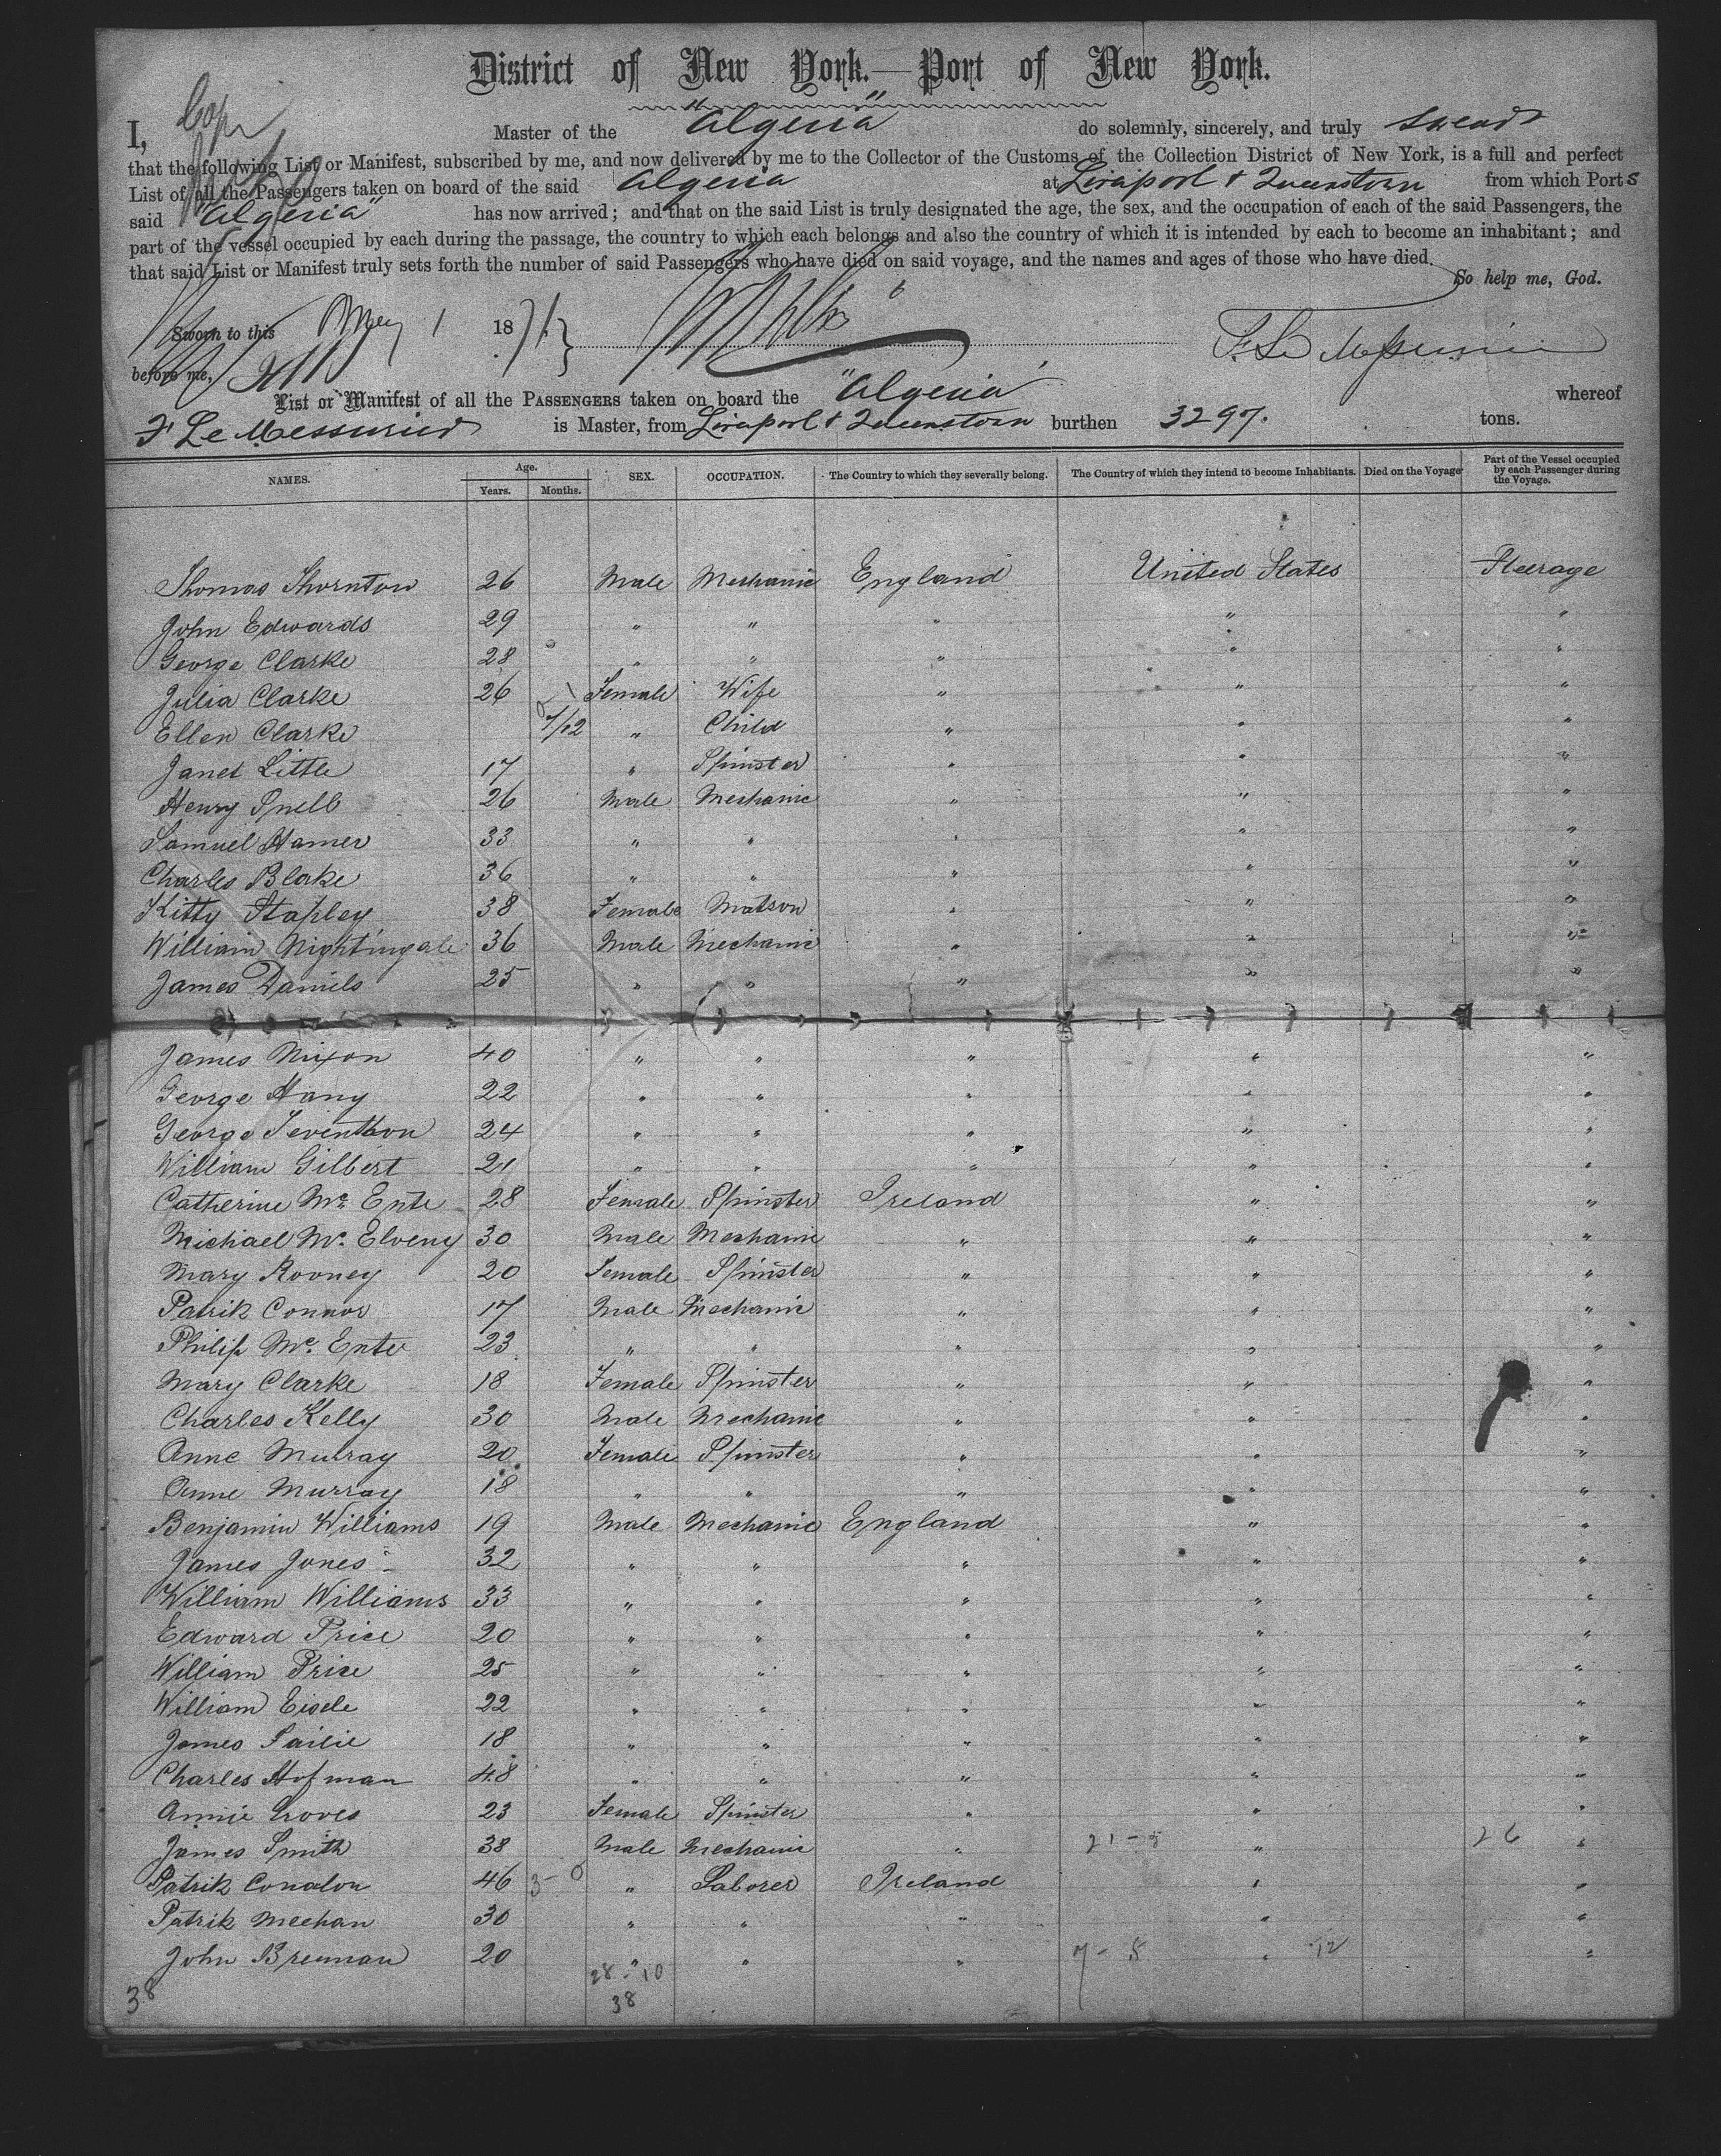 District of New York.—Port of New York.
I, Master of the "Algeria" do solemnly, sincerely, and truly swear
that the following List or Manifest, subscribed by me, and now delivered by me to the Collector of the Customs of the Collection District of New York, is a full and perfect
List of all the Passengers taken on board of the said Algeria at Liverpool & Queenstown from which Ports
said "Algeria" has now arrived; and that on the said List is truly designated the age, the sex, and the occupation of each of the said Passengers, the
part of the vessel occupied by each during the passage, the country to which each belongs and also the country of which it is intended by each to become an inhabitant; and
that said List or Manifest truly sets forth the number of said Passengers who have died on said voyage, and the names and ages of those who have died.
So help me, God.
Sworn to this May 1 1871 }
before me,
List or Manifest of all the PASSENGERS taken on board the "Algeria" whereof
F Le Messurier is Master, from Liverpool & Queenstown burthen 3297. tons.
NAMES. Age. Years. Months. SEX. OCCUPATION. The Country to which they severally belong. The Country of which they intend to become Inhabitants. Died on the Voyage Part of the Vessel occupied by each Passenger during the Voyage.
Thomas Thornton 26 Male Mechanic England United States Steerage
John Edwards 29 " " " " "
George Clarke 28 " " " " "
Julia Clarke 26 Female Wife " " "
Ellen Clarke 7/12 " Child " " "
Janet Little 17 " Spinster " " "
Henry Snell 26 Male Mechanic " " "
Samuel Hamer 33 " " " " "
Charles Blake 36 " " " " "
Kitty Stapley 38 Female Matron " " "
William Nightingale 36 Male Mechanic " " "
James Daniels 25 " " " " "
James Nixon 40 " " " " "
George Hany 22 " " " " "
George 24 " " " " "
William Gilbert 21 " " " " "
Catherine Mc Ente 28 Female Spinster Ireland " "
Michael Mc. Elveny 30 Male Mechanic " " "
Mary Rooney 20 Female Spinster " " "
Patrik Connor 17 Male Mechanic " " "
Philip Mc. Ente 23 " " " " "
Mary Clarke 18 Female Spinster " " "
Charles Kelly 30 Male Mechanic " " "
Anne Murray 20 Female Spinster " " "
Anne Murray 18 " " " " "
Benjamin Williams 19 Male Mechanic England " "
James Jones 32 " " " " "
William Williams 33 " " " " "
Edward Price 20 " " " " "
William Price 25 " " " " "
William Eisele 22 " " " " "
James 18 " " " " "
Charles Hofman 48 " " " " "
Annie Groves 23 Female Spinster " " "
James Smith 38 Male Mechanic " 21-5 " 26 "
Patrik Conalon 46 3-0 " Laborer Ireland " "
Patrik Meehan 30 " " " " "
John Brennan 20 " " " 7-5 " 12 "
28-10
38 38